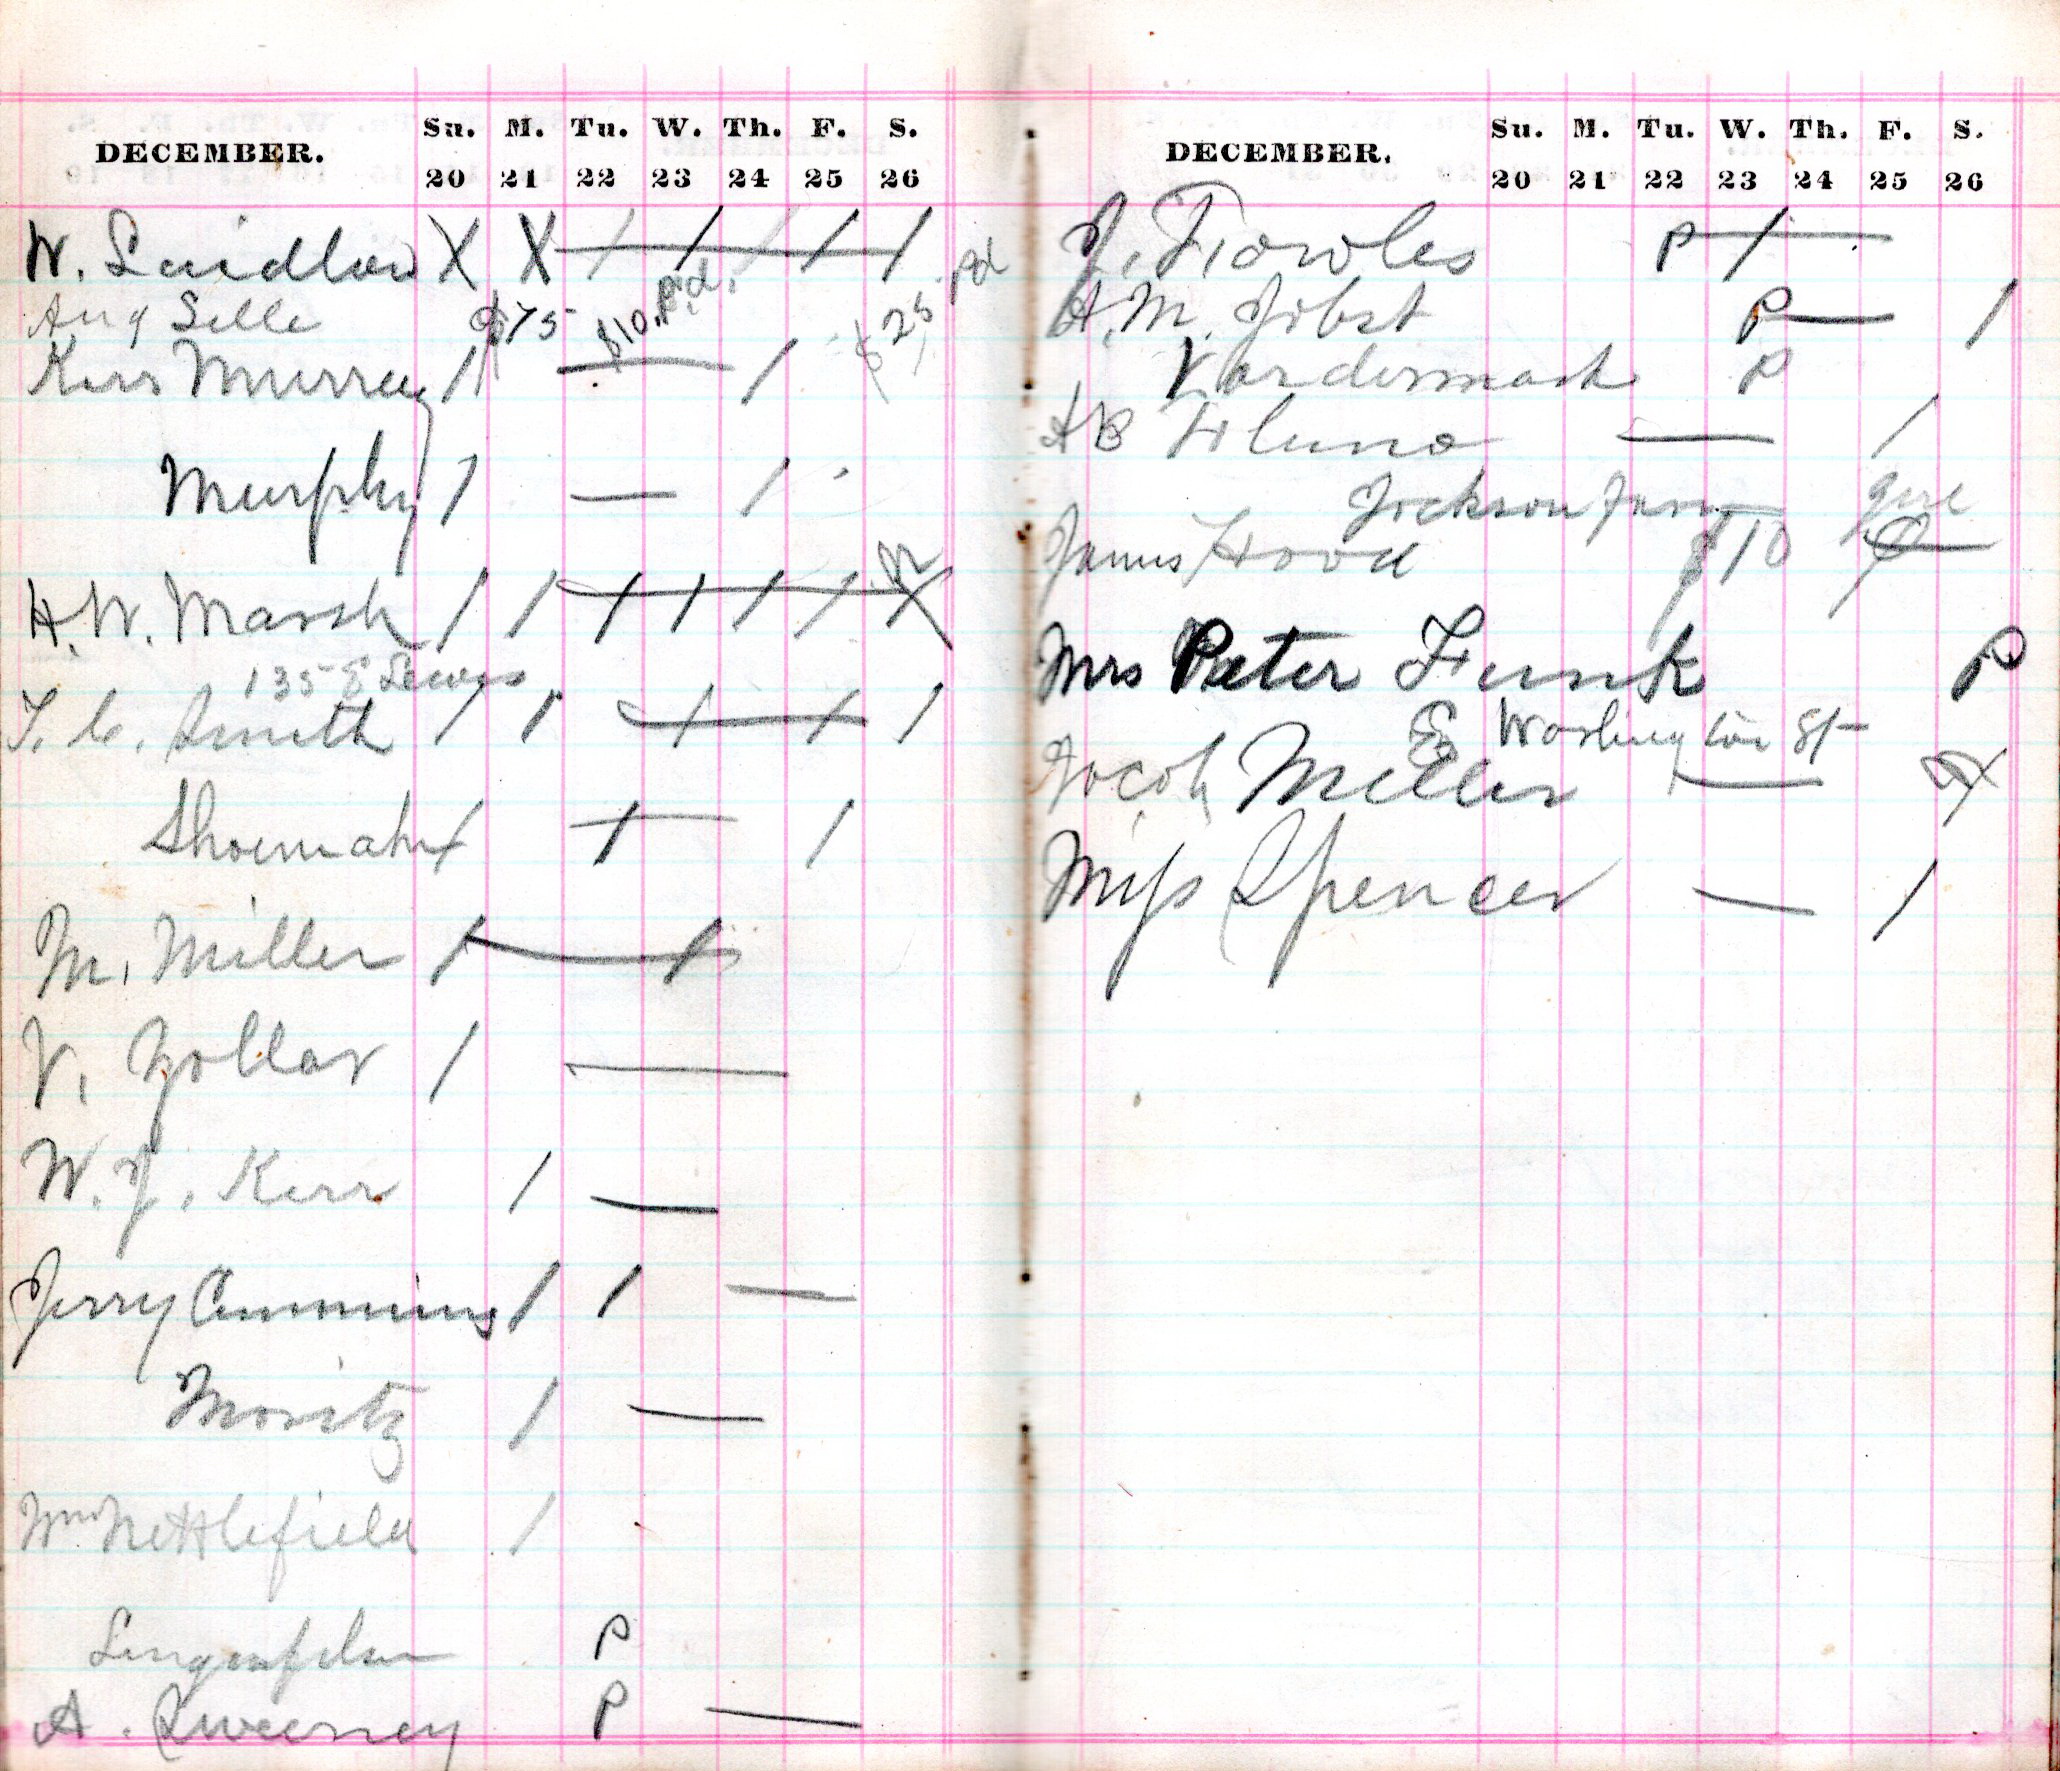 DECEMBER. Su. M. Tu. W. Th. F. S.
20 21 22 23 24 25 26
W. Laidlow X X / / / / / pd
Aug Selle $75 $10. Pd. $25
Kerr Murray / /
Murphy / /
H. W. Marsh / / / / / / X
135 E Lewis
T. C. Smith / / / / /
Shoemaker / / /
M. Miller / /
V. Zollar /
W. J. Kerr /
Jerry Cummins / /
Moritz /
Wm Nettlefield /
P
A. Sweeney P
DECEMBER. Su. M. Tu. W. Th. F. S.
20 21 22 23 24 25 26
J. Fowles P /
A. M. Jobst P /
Vordermark P
AB /
Jackson girl
James Hood $10
Mrs Peter Funk P
E Washington St
Jacob Miller
Miss Spencer /